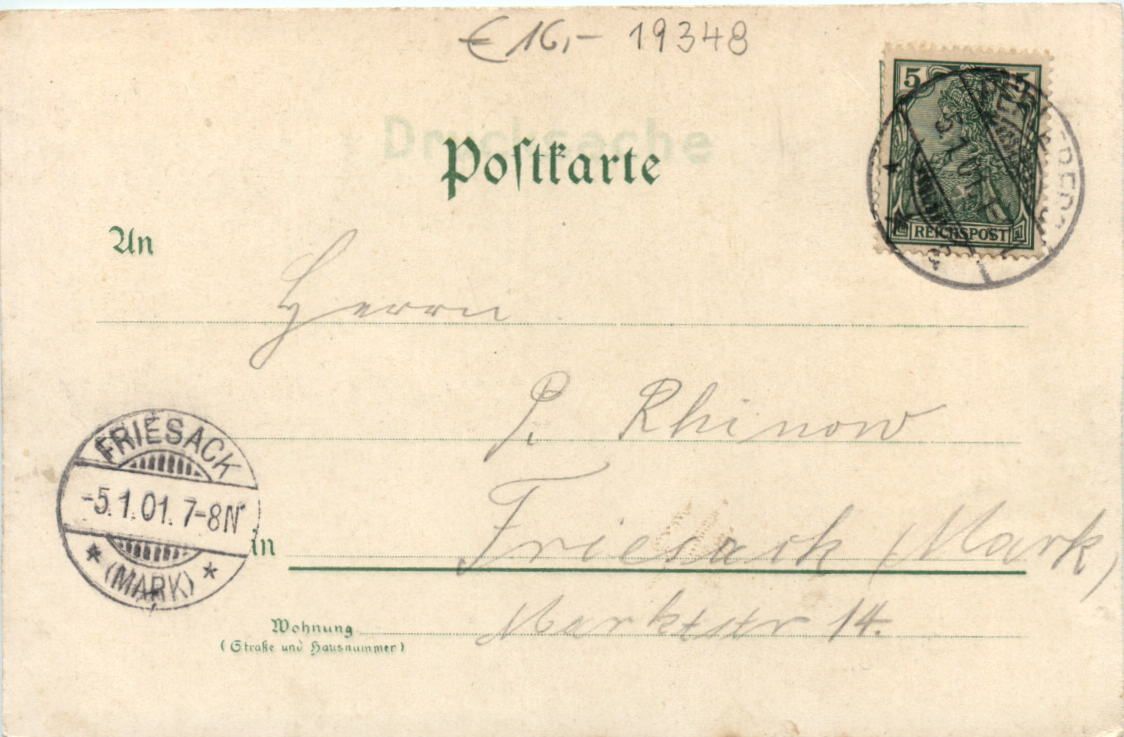 € 16,- 19348
Drucksache
Postkarte
5 5
REICHSPOST
An
Herrn
P. Rhinow
FRIESACK
-5.1.01. 7-8N
(MARK)
in Friesack (Mark)
Wohnung Marktstr 14.
(Straße und Hausnummer)